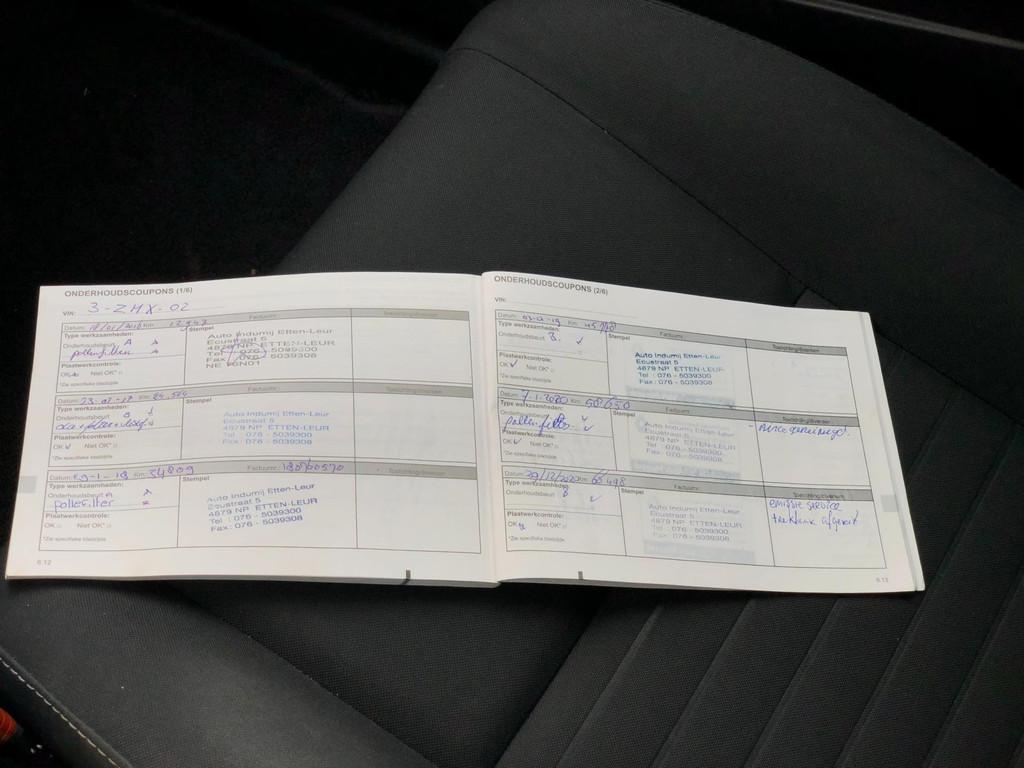 ONDERHOUDSCOUPONS (1/6)
VIN: 3-ZHX-02
Datum: Km: Factuurnr.:
Type werkzaamheden: Stempel
Onderhoudsbeurt A
pollenfilter
Plaatwerkcontrole:
OK Niet OK*
*Zie specifieke bladzijde
Auto Indumij Etten-Leur
Ecustraat 5
4879 NP ETTEN-LEUR
Tel : 076 - 5039300
Fax : 076 - 5039308
Datum: 23-01-17 Km: Factuurnr.:
Type werkzaamheden: Stempel
Onderhoudsbeurt B
Plaatwerkcontrole:
OK Niet OK*
*Zie specifieke bladzijde
Auto Indumij Etten-Leur
Ecustraat 5
4879 NP ETTEN-LEUR
Tel : 076 - 5039300
Fax : 076 - 5039308
Datum: 29-1-18 Km: 34809 Factuurnr.:
Type werkzaamheden: Stempel
Onderhoudsbeurt A
pollefilter
Plaatwerkcontrole:
OK Niet OK*
*Zie specifieke bladzijde
Auto Indumij Etten-Leur
Ecustraat 5
4879 NP ETTEN-LEUR
Tel : 076 - 5039300
Fax : 076 - 5039308
6.12
ONDERHOUDSCOUPONS (2/6)
VIN:
Datum: Km: Factuurnr.:
Type werkzaamheden: Stempel
Onderhoudsbeurt B
Plaatwerkcontrole:
OK Niet OK*
*Zie specifieke bladzijde
Auto Indumij Etten-Leur
Ecustraat 5
4879 NP ETTEN-LEUR
Tel : 076 - 5039300
Fax : 076 - 5039308
Datum: 7-1-2020 Km: Factuurnr.:
Type werkzaamheden: Stempel
Onderhoudsbeurt
pollenfilter
Plaatwerkcontrole:
OK Niet OK*
*Zie specifieke bladzijde
Auto Indumij Etten-Leur
Ecustraat 5
4879 NP ETTEN-LEUR
Tel : 076 - 5039300
Fax : 076 - 5039308
- Airco gereinigd!
Datum: 29/12/2020 Km: Factuurnr.:
Type werkzaamheden: Stempel
Onderhoudsbeurt B
Plaatwerkcontrole:
OK Niet OK*
*Zie specifieke bladzijde
Auto Indumij Etten-Leur
Ecustraat 5
4879 NP ETTEN-LEUR
Tel : 076 - 5039300
Fax : 076 - 5039308
emissie service
6.13